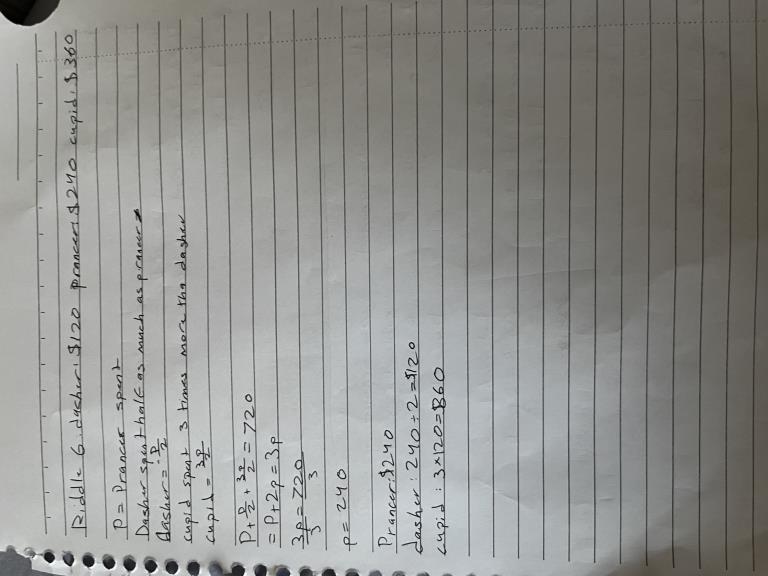 Riddle 6. dasher: $120 prancer: $240 cupid: $360
P = Prancer spent
Dasher spent half as much as prancer
dasher = P/2
cupid spent 3 times more tha dasher
cupid = 3p/2
P + P/2 + 3p/2 = 720
= P + 2p = 3p
3p/3 = 720/3
p = 240
Prancer: $240
dasher: 240 ÷ 2 = $120
cupid: 3 x 120 = $360